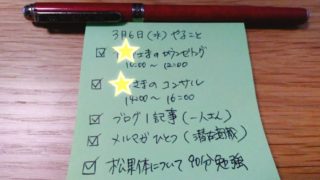 3月6日(水)やること
さまのカウンセリング
10:00〜12:00
さまのコンサル
14:00〜16:00
ブログ1記事(一人さん)
メルマガひとつ(潜在意識)
松果体について90分勉強